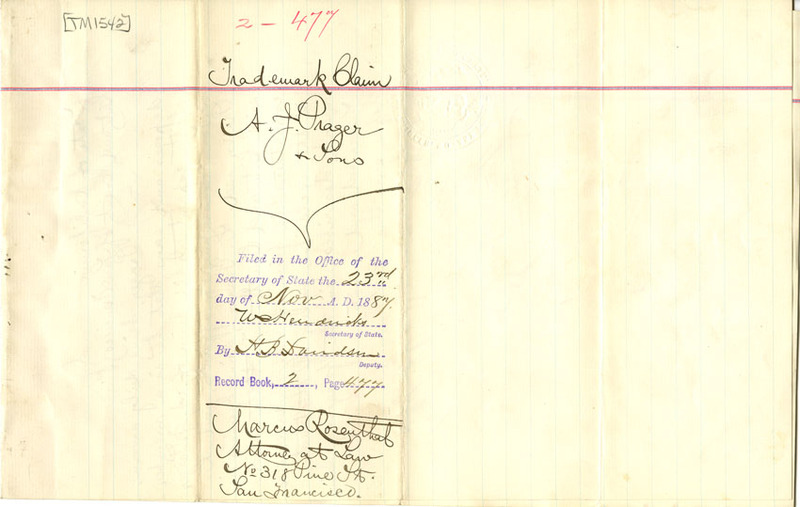 [TM1542]
2 - 477
Trademark Claim
A. J. Prager
& Sons
Filed in the Office of the
Secretary of State the 23rd
day of Nov A. D. 1887.
W C Hendricks
Secretary of State.
By
Deputy.
Record Book, 2, Page 477
Marcus Rosenthal
Attorney at Law
No 318 Pine St.
San Francisco.